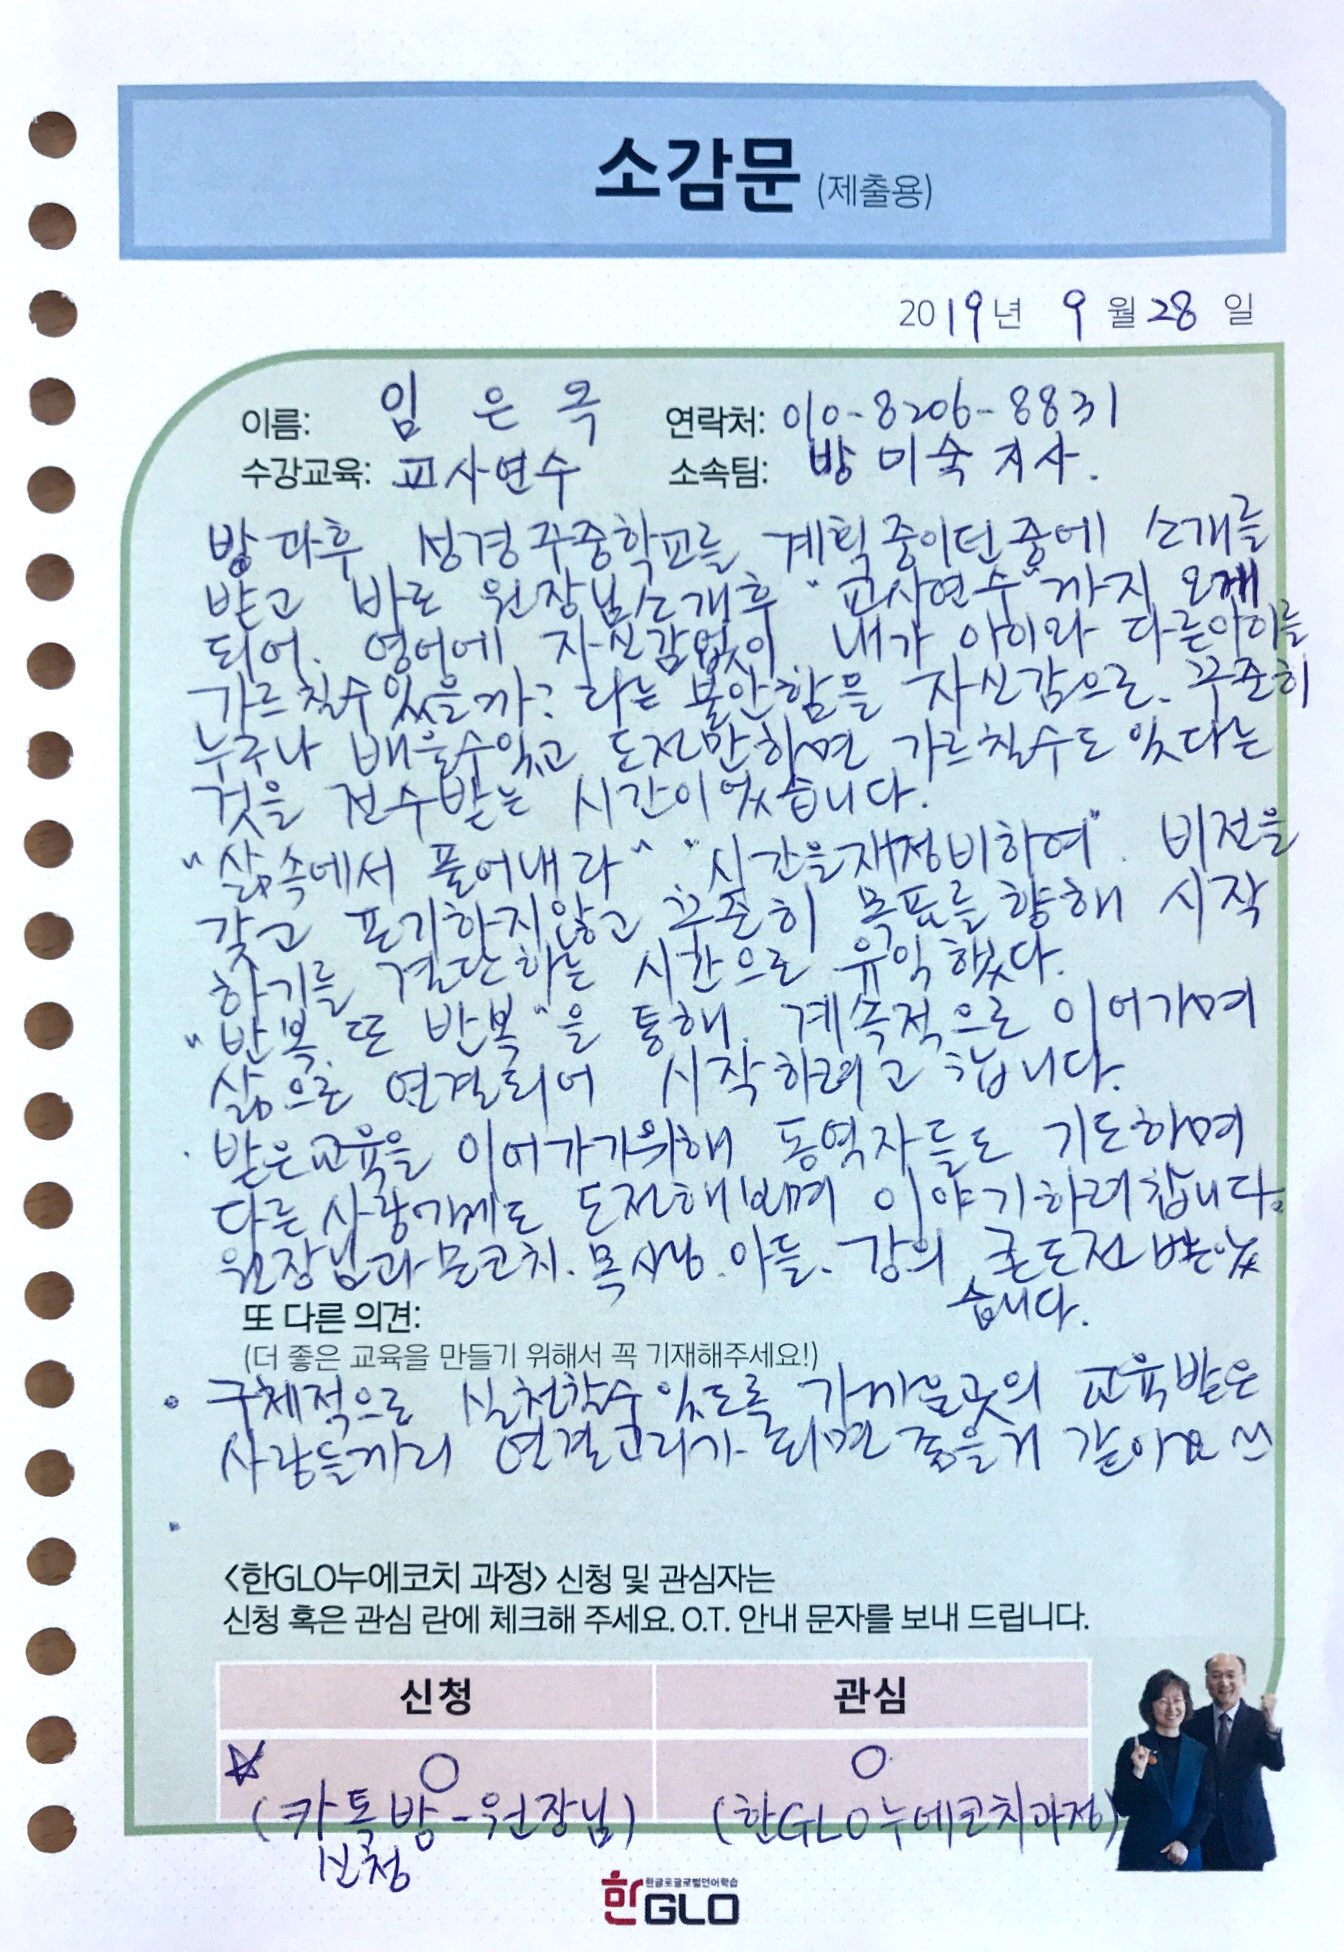 소감문 (제출용)
2019년 9월 28일
이름: 임은옥 연락처: 010-8206-8831
수강교육: 교사연수 소속팀: 방미숙 지사.
방과후 성경주중학교를 계획중이던중에 소개를
받고 바로 원장님소개후 "교사연수"까지 오게
되어. 영어에 자신감없이 내가 아이와 다른아이를
가르칠수있을까? 라는 불안함을 자신감으로. 꾸준히
누구나 배울수있고 도전만하면 가르칠수도 있다는
것을 전수받는 시간이었습니다.
"삶속에서 풀어내라" "시간을재정비하여". 비전을
갖고 포기하지않고 꾸준히 목표를 향해 시작
하기를 결단하는 시간으로 유익했다.
"반복. 또 반복"을 통해. 계속적으로 이어가며
삶으로 연결되어 시작하려고 합니다.
· 받은교육을 이어가기위해 동역자들도 기도하며
다른 사람에게도 도전해보며 이야기하려합니다.
원장님과 문코치. 목사님. 아들. 강의 큰도전 받았
습니다.
또 다른 의견:
(더 좋은 교육을 만들기 위해서 꼭 기재해주세요!)
∘ 구체적으로 실천할수있도록 가까운곳의 교육받은
사람들끼리 연결고리가 되면 좋을거 같아요 ^^
<한GLO누에코치 과정> 신청 및 관심자는
신청 혹은 관심 란에 체크해 주세요. O.T. 안내 문자를 보내 드립니다.
신청 관심
☆ ○ ○
(카톡방-원장님) (한GLO누에코치과정)
신청
한글로글로벌언어학습
한GLO